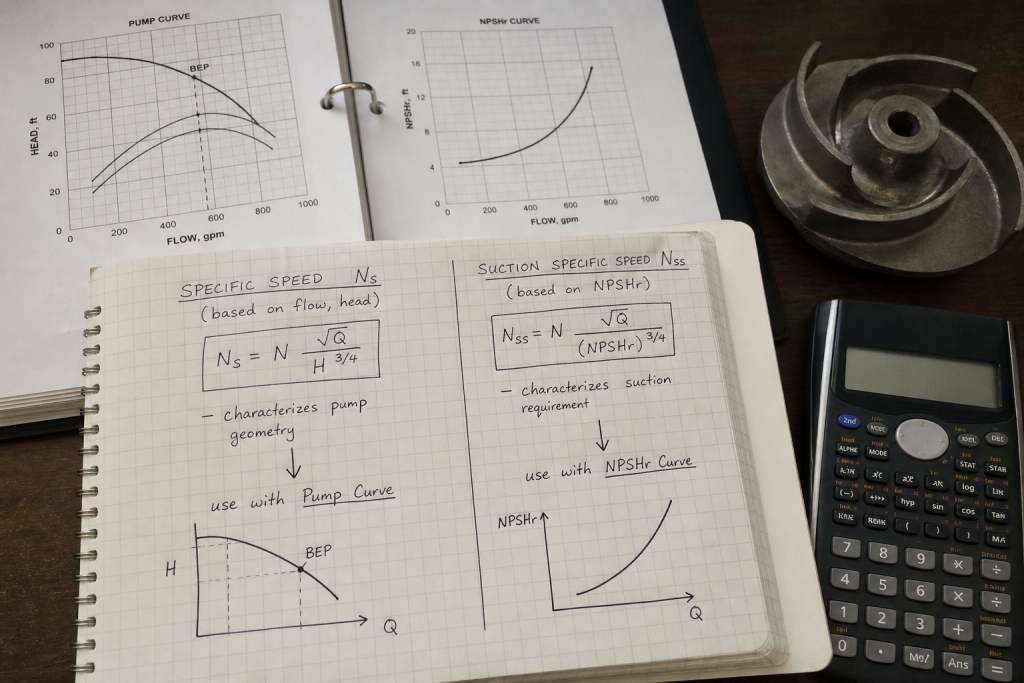 PUMP CURVE
100
80
60
40
20
0
HEAD, ft
BEP
0
200
400
600
800
1000
FLOW, gpm
NPSHr CURVE
20
16
12
8
4
0
NPSHr, ft
0
200
400
600
800
1000
FLOW, gpm
SPECIFIC SPEED Ns
(based on flow, head)
Ns = N √Q / H 3/4
– characterizes pump
geometry
use with Pump Curve
H
BEP
Q
SUCTION SPECIFIC SPEED Nss
(based on NPSHr)
Nss = N √Q / (NPSHr) 3/4
– characterizes suction
requirement
use with NPSHr Curve
NPSHr
Q
2nd
MODE
DEL
ALPHE MODE
STAT
log LIN
(–) hyp sin cos Tan
( ) )
7 8 9 ÷
4 5 6 × ÷
1 2 3 + −
0 . Ans =